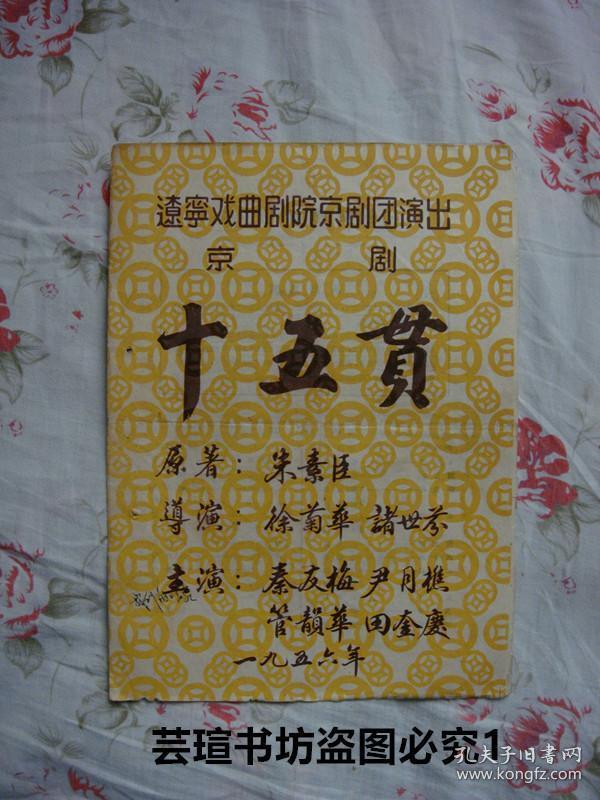 遼寧戏曲剧院京剧团演出
京剧
十五贯
原著：朱素臣
導演：徐菊華 諸世芬
主演：秦友梅 尹月樵
管韻華 田奎慶
一九五六年
芸瑄书坊盗图必究1
孔夫子旧书网
www.kongfz.com